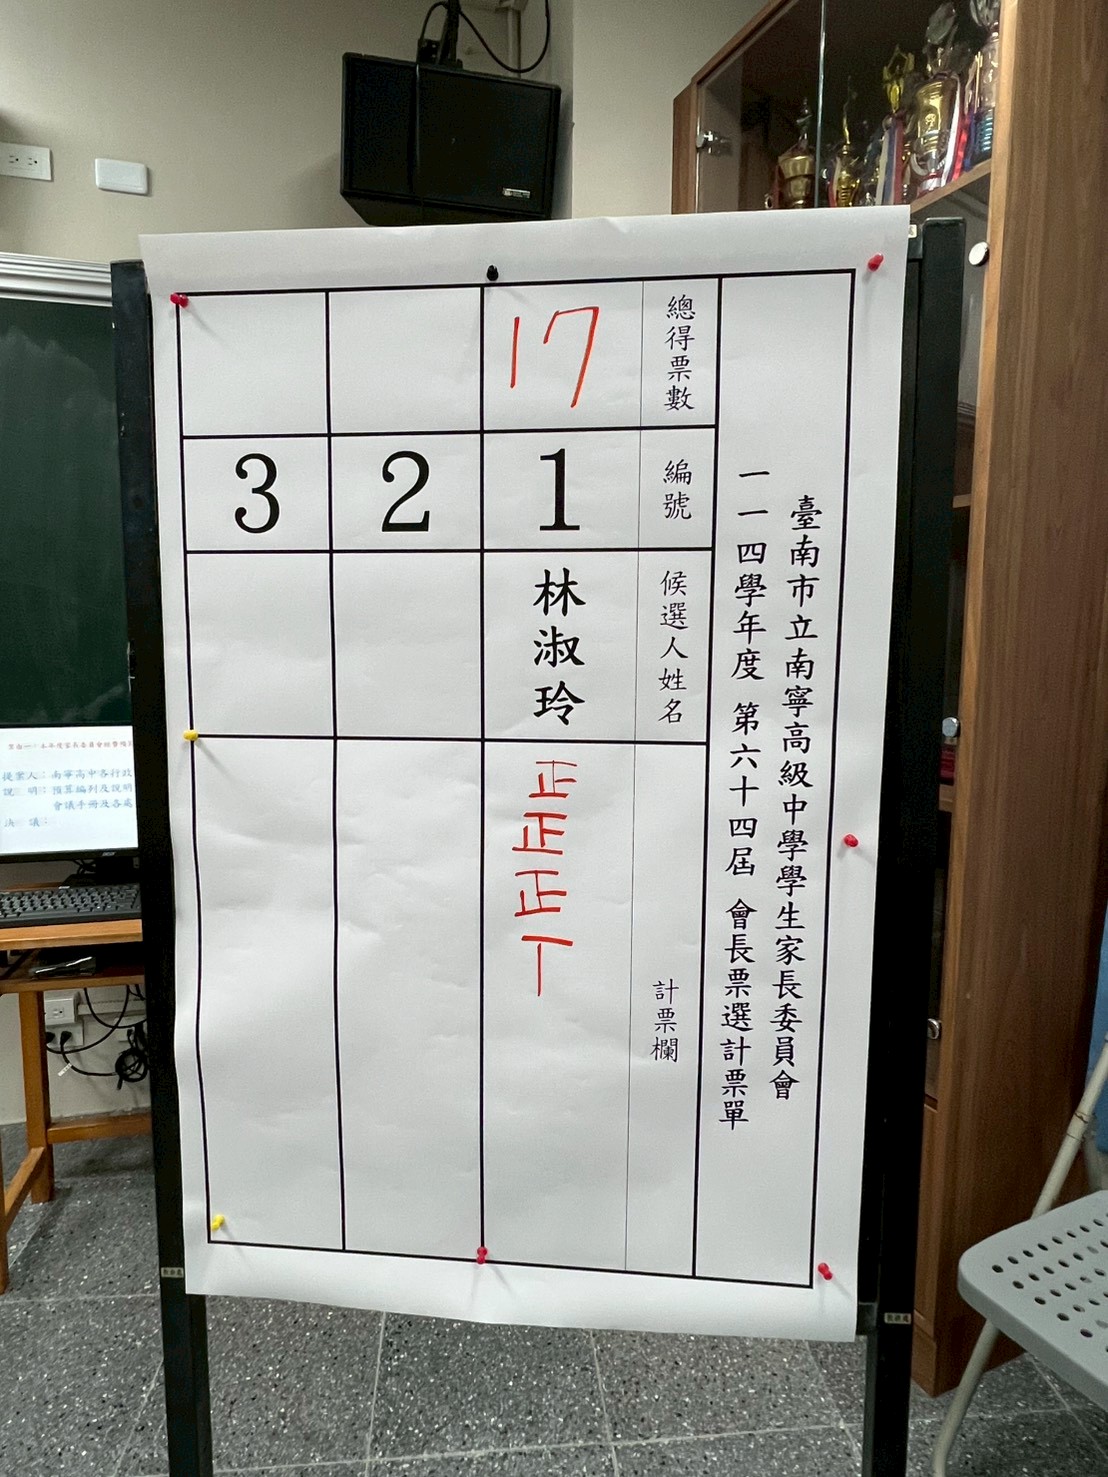 臺南市立南寧高級中學學生家長委員會
一一四學年度 第六十四屆 會長票選計票單
總得票數
編號
候選人姓名
計票欄
17
1
林淑玲
正
正
正
丅
2
3
提案人：南寧高中各行政
說 明：推算編列及說明
會議手冊及各處
決 議：